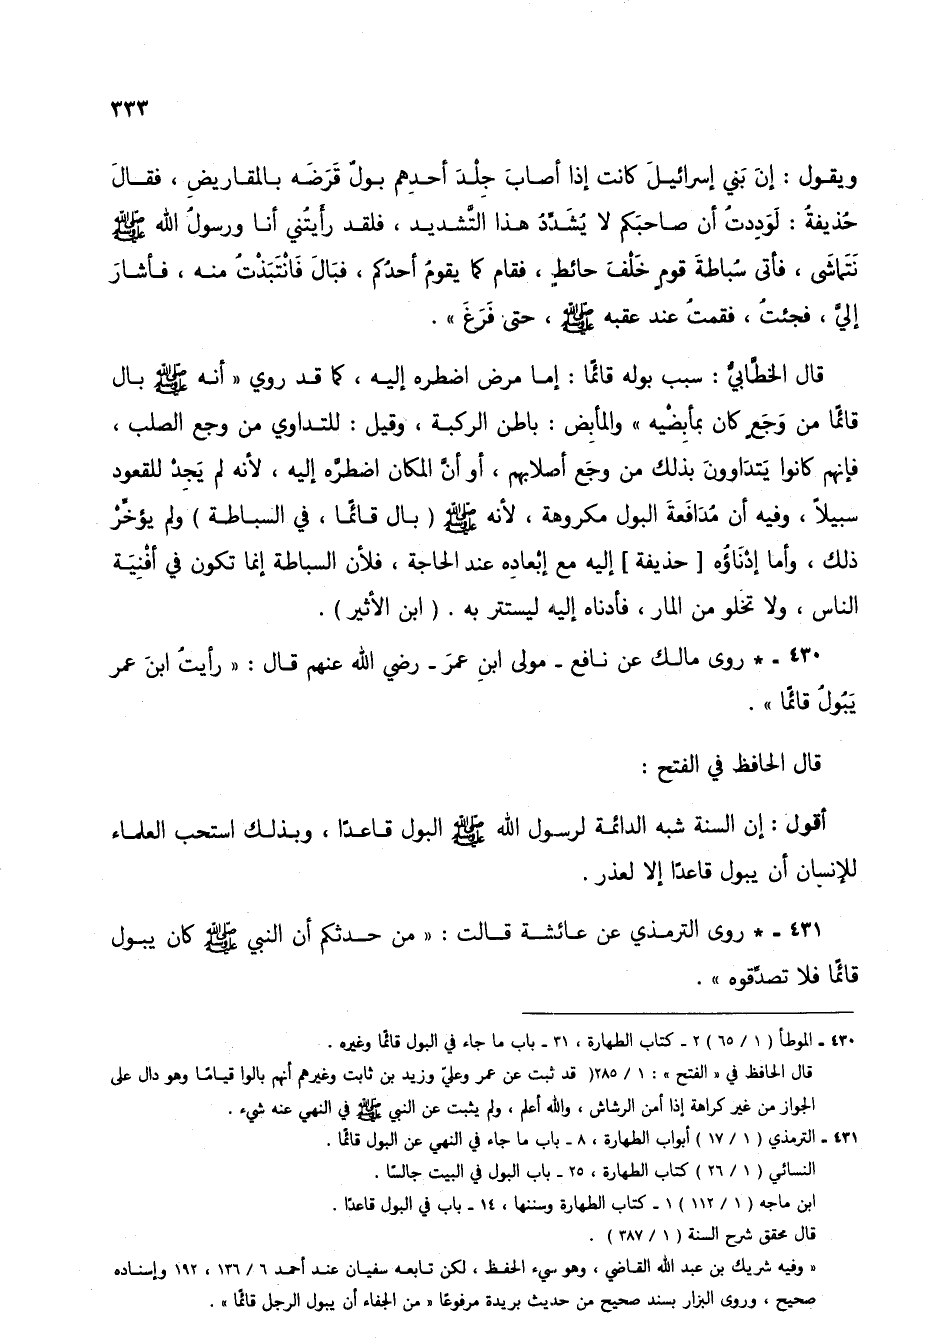 ٣٣٣
ويقول : إن بَني إسرائيلَ كانت إذا أصابَ جِلْدَ أحدِهم بولٌ قَرَضَه بالمقاريض ، فقالَ
حُذيفةُ : لَوَدِدتُ أن صاحبَكم لا يُشَدِّدُ هذا التَّشديد ، فلقد رأَيتُني أنا ورسولُ الله ﷺ
نَتَماشَى ، فأتى سُباطةَ قومٍ خَلْفَ حائطٍ ، فقام كما يقومُ أحدُكم ، فبَالَ فَانْتَبَذْتُ منه ، فأشارَ
إليَّ ، فجئتُ ، فقمتُ عند عقبه ﷺ ، حتى فَرَغَ » .
قال الخطَّابيُّ : سبب بوله قائمًا : إما مرض اضطره إليه ، كما قد روي « أنه ﷺ بال
قائمًا من وَجَعٍ كان بمأبِضْيه » والمأبِض : باطن الركبة ، وقيل : للتداوي من وجع الصلب ،
فإنهم كانوا يَتدَاوونَ بذلك من وجَع أصلابهم ، أو أنَّ المكان اضطرَّه إليه ، لأنه لم يَجِدْ للقعود
سبيلاً ، وفيه أن مُدَافَعةَ البول مكروهة ، لأنه ﷺ ( بال قائمًا ، في السباطة ) ولم يؤخِّرْ
ذلك ، وأما إدْنَاؤُه [ حذيفة ] إليه مع إبْعادِه عند الحاجة ، فلأن السباطة إنما تكون في أفْنِيَة
الناس ، ولا تخلو من المار ، فأدناه إليه ليستتر به . ( ابن الأثير ) .
٤٣٠ - * روى مالك عن نافع - مولى ابنِ عمرَ - رضي الله عنهم قال : « رأيتُ ابنَ عمر
يَبُولُ قائمًا » .
قال الحافظ في الفتح :
أقول : إن السنة شبه الدائمة لرسول الله ﷺ البول قاعدًا ، وبذلك استحب العلماء
للإنسان أن يبول قاعدًا إلا لعذر .
٤٣١ - * روى الترمذي عن عائشة قالت : « من حدثكم أن النبي ﷺ كان يبول
قائمًا فلا تصدِّقوه » .
٤٣٠ - الموطأ ( ١ / ٦٥ ) ٢ - كتاب الطهارة ، ٣١ - باب ما جاء في البول قائمًا وغيره .
قال الحافظ في « الفتح » : ١ / ٢٨٥( قد ثبت عن عمر وعليّ وزيد بن ثابت وغيرهم أنهم بالوا قيامًا وهو دال على
الجواز من غير كراهة إذا أمن الرشاش ، والله أعلم ، ولم يثبت عن النبي ﷺ في النهي عنه شيء .
٤٣١ - الترمذي ( ١ / ١٧ ) أبواب الطهارة ، ٨ - باب ما جاء في النهي عن البول قائمًا .
النسائي ( ١ / ٢٦ ) كتاب الطهارة ، ٢٥ - باب البول في البيت جالسًا .
ابن ماجه ( ١ / ١١٢ ) ١ - كتاب الطهارة وسننها ، ١٤ - باب في البول قاعدًا .
قال محقق شرح السنة ( ١ / ٣٨٧ ) .
« وفيه شريك بن عبد الله القاضي ، وهو سيء الحفظ ، لكن تابعه سفيان عند أحمد ٦ / ١٣٦ ، ١٩٢ وإسناده
صحيح ، وروى البزار بسند صحيح من حديث بريدة مرفوعًا « من الجفاء أن يبول الرجل قائمًا » .